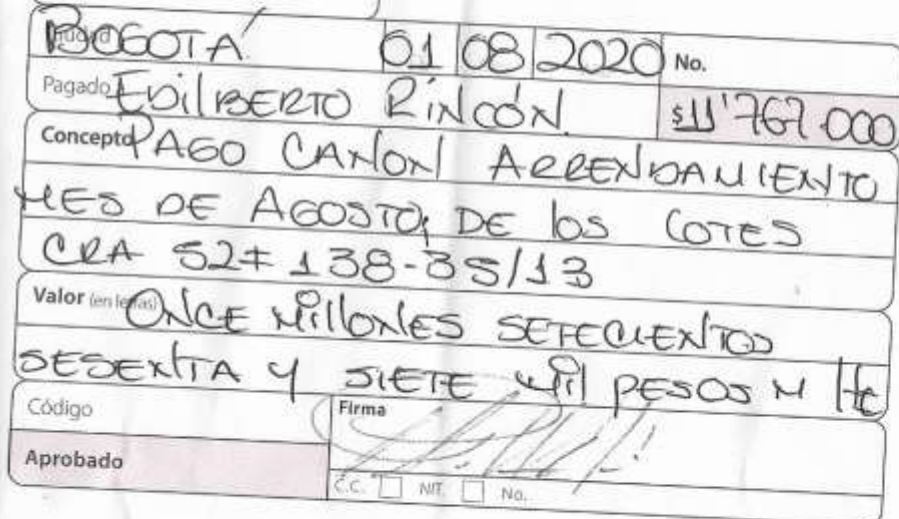 Ciudad BOGOTÁ 01 08 2020 No.
Pagado EDILBERTO RINCÓN $11'767.000
Concepto PAGO CANON ARRENDAMIENTO
MES DE AGOSTO, DE los COTES
CRA 52# 138-35/13
Valor (en letras) ONCE MILLONES SETECIENTOS
SESENTA Y SIETE MIL PESOS M/te
Código
Firma
Aprobado
C.C. NIT. No.